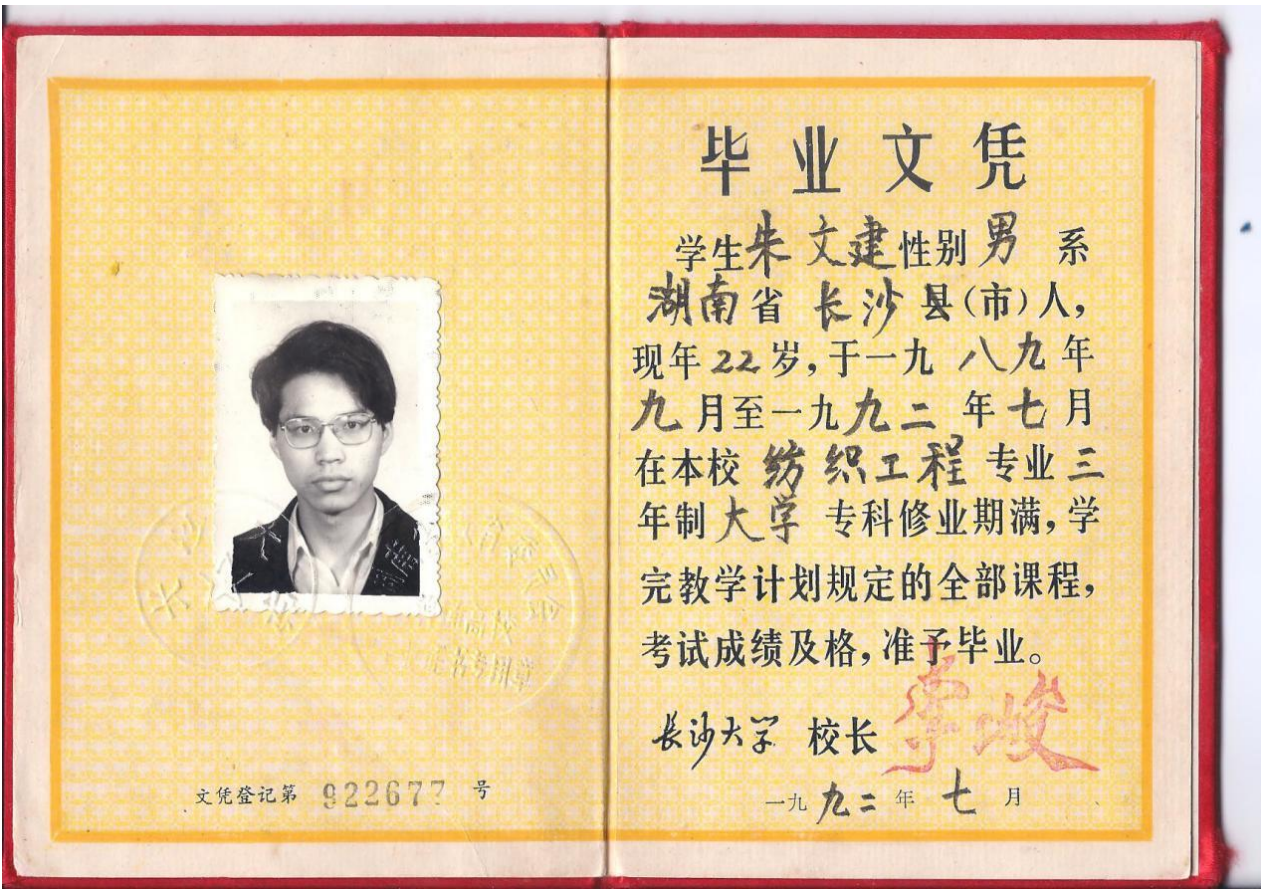 文凭登记第 922677 号
毕业文凭
学生朱文建性别男 系
湖南省长沙县(市)人，
现年22岁，于一九八九年
九月至一九九二年七月
在本校纺织工程专业三
年制大学专科修业期满，学
完教学计划规定的全部课程，
考试成绩及格，准予毕业。
长沙大学 校长 李峻
一九九二年七月